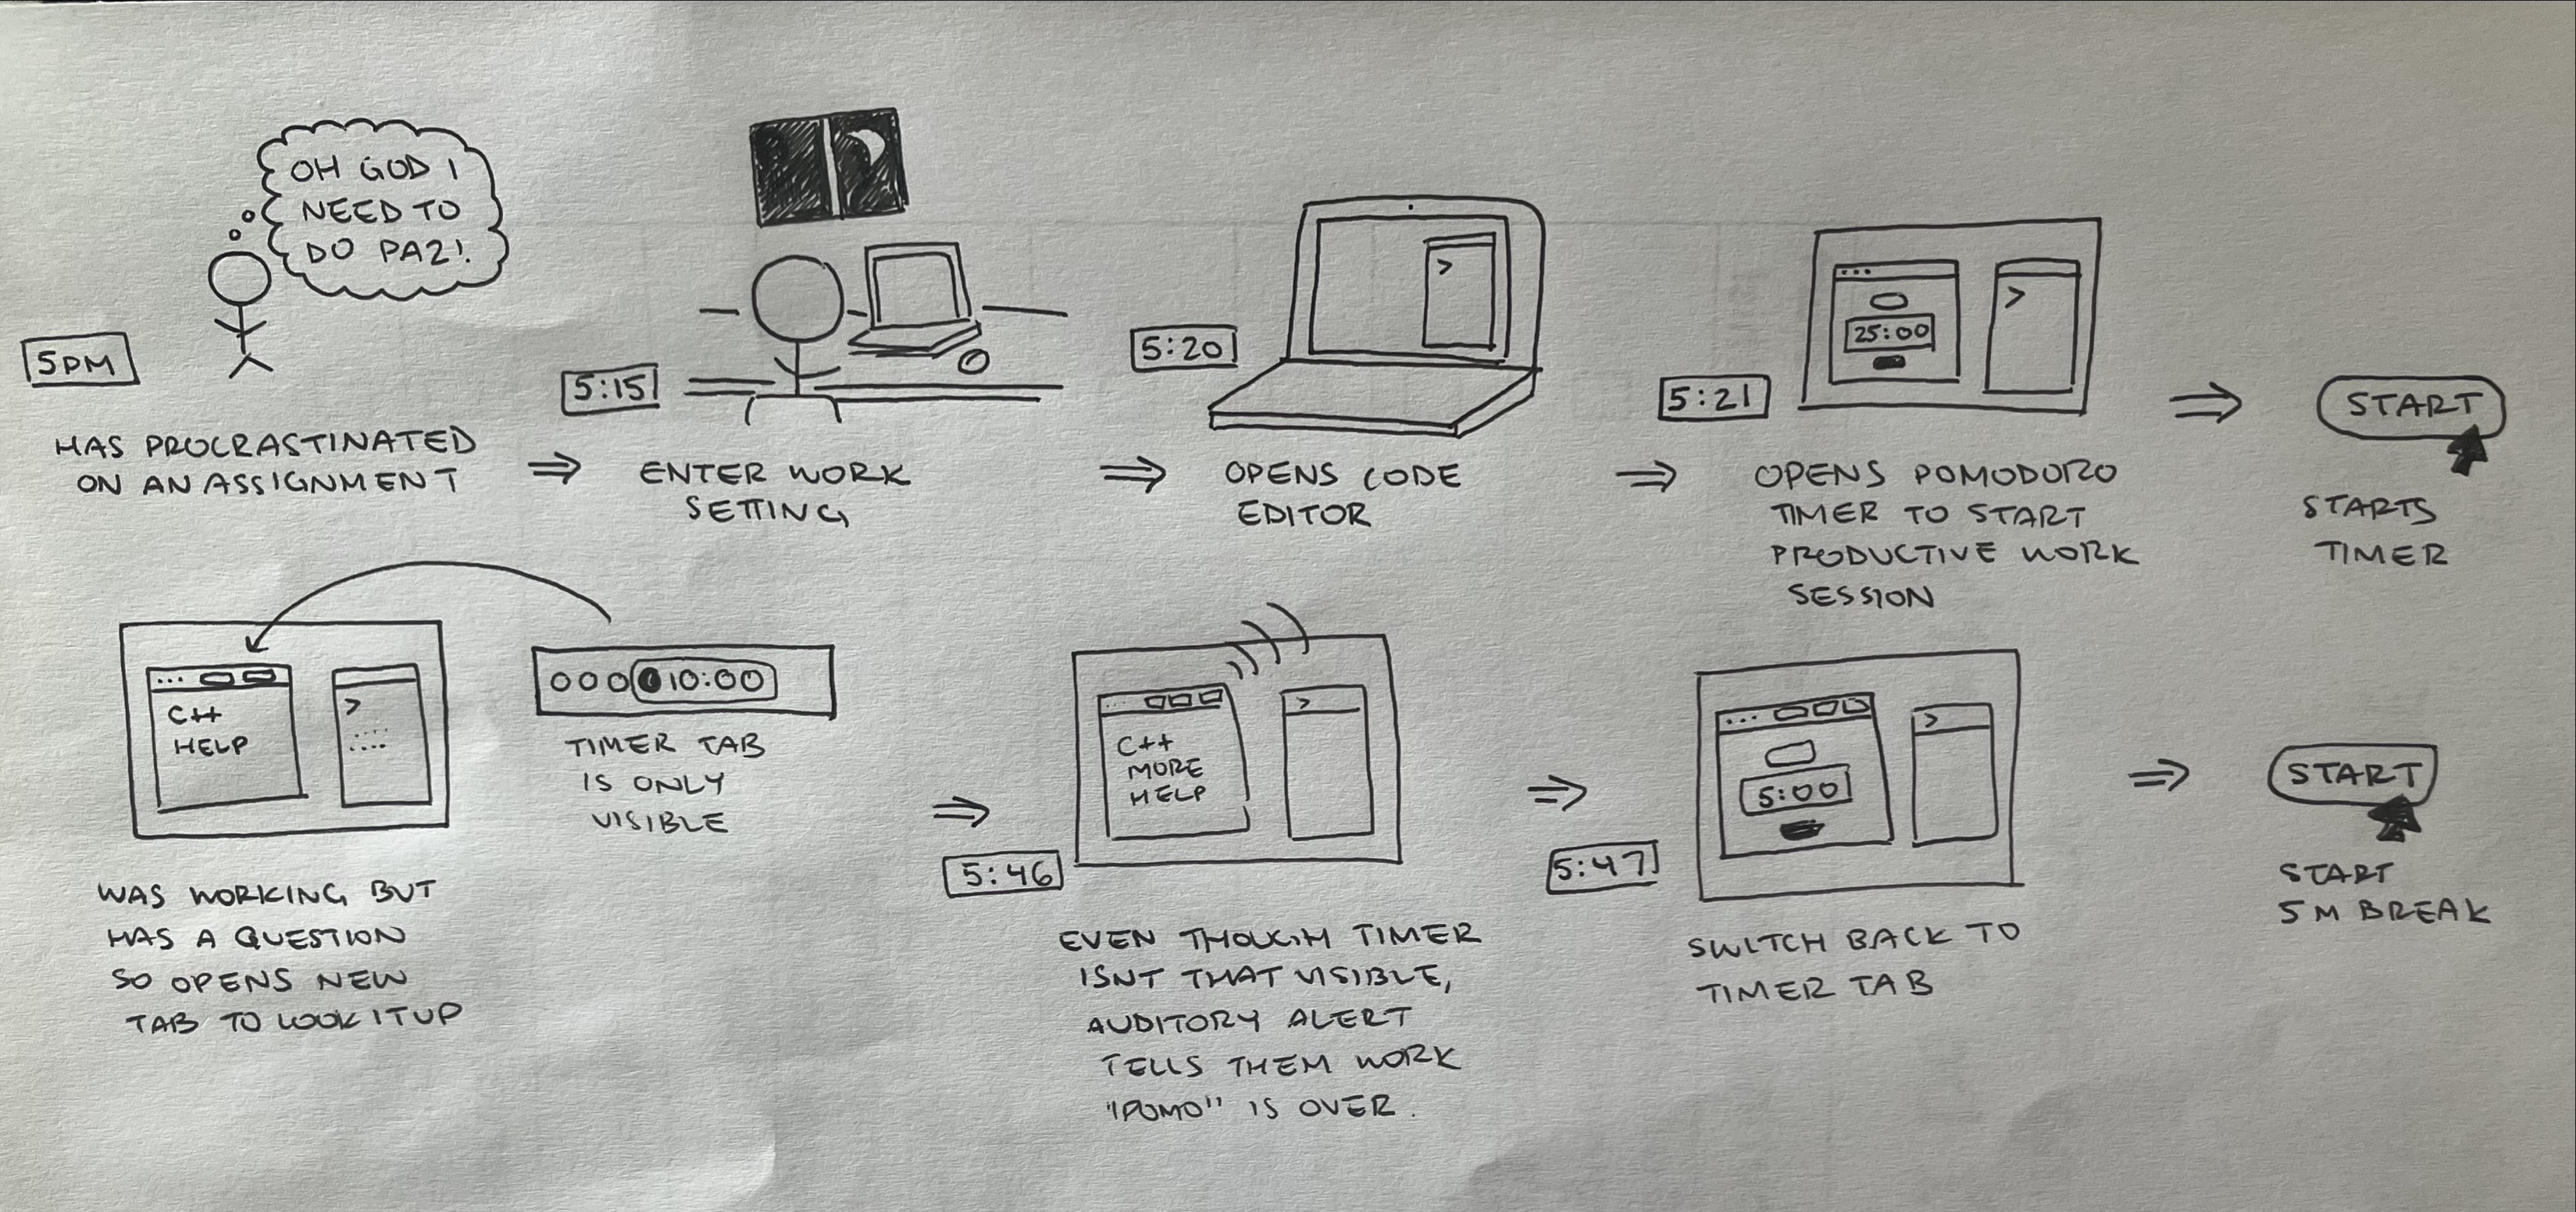 OH GOD I
NEED TO
DO PA2!
5PM
HAS PROCRASTINATED
ON AN ASSIGNMENT
5:15
ENTER WORK
SETTING
5:20
>
OPENS CODE
EDITOR
5:21
25:00
>
OPENS POMODORO
TIMER TO START
PRODUCTIVE WORK
SESSION
START
STARTS
TIMER
C++
HELP
>
WAS WORKING BUT
HAS A QUESTION
SO OPENS NEW
TAB TO LOOK IT UP
10:00
TIMER TAB
IS ONLY
VISIBLE
5:46
C++
MORE
HELP
>
EVEN THOUGH TIMER
ISNT THAT VISIBLE,
AUDITORY ALERT
TELLS THEM WORK
"POMO" IS OVER.
5:47
5:00
>
SWITCH BACK TO
TIMER TAB
START
START
5 M BREAK